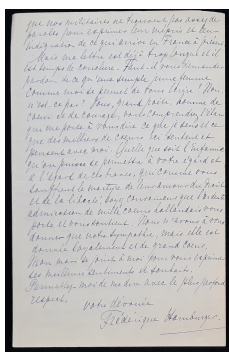 que nos militaires ne trouvent pas assez de
paroles pour exprimer leur mépris et leur
indignation de ce qui arrive en France à présent
Mais ma lettre est déjà trop longue et il
est temps de conclure. Il faut vous demander
pardon de ce qu'une simple jeune femme
comme moi se permet de vous écrire! Non,
n'est-ce pas? Vous, grand poète, homme de
cœur et de courage, vous comprendrez l'élan
qui me porte à vous dire ce que je sens et ce
que des milliers de cœurs ici sentent et
pensent avec moi. Quelle que soit l'infamie
qu'on puisse se permettre à votre égard et
à l'égard de ces braves, qui comme vous
souffrent le martyre de leur amour du droit
et de la liberté, soyez convaincu que
admiration de mille cœurs hollandais vous
porte et vous soutient. Nous n'avons à vous
donner que notre sympathie, mais elle est
donnée loyalement et de grand cœur.
Mon mari se joint à moi pour vous
ses meilleurs sentiments et souhaits.
Permettez-moi de me dire avec le plus profond
respect,
votre dévouée
Frédérique Hamburger